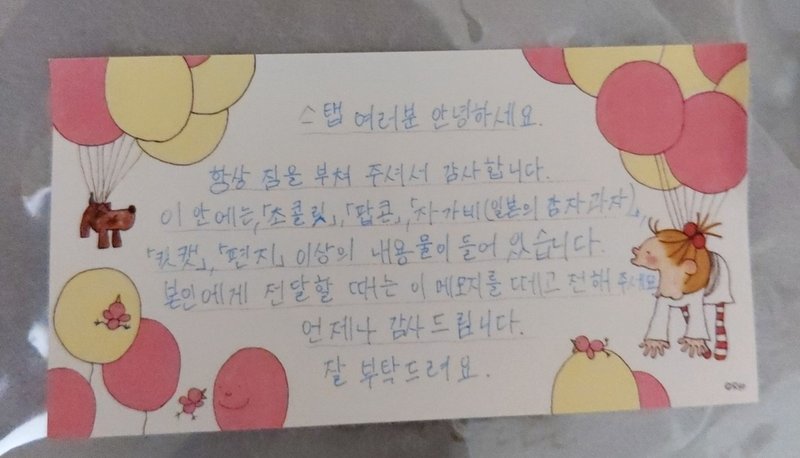 스탭 여러분 안녕하세요.
항상 짐을 부쳐 주셔서 감사합니다.
이 안에는,「초콜릿」,「팝콘」,「자가비(일본의 감자과자)」,
「킷캣」,「편지」 이상의 내용물이 들어 있습니다.
본인에게 전달할 때는 이 메모지를 떼고 전해 주세요.
언제나 감사드립니다.
잘 부탁드려요.